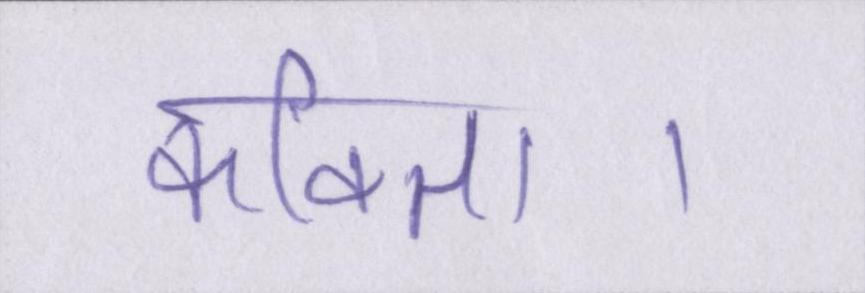 कविता ।